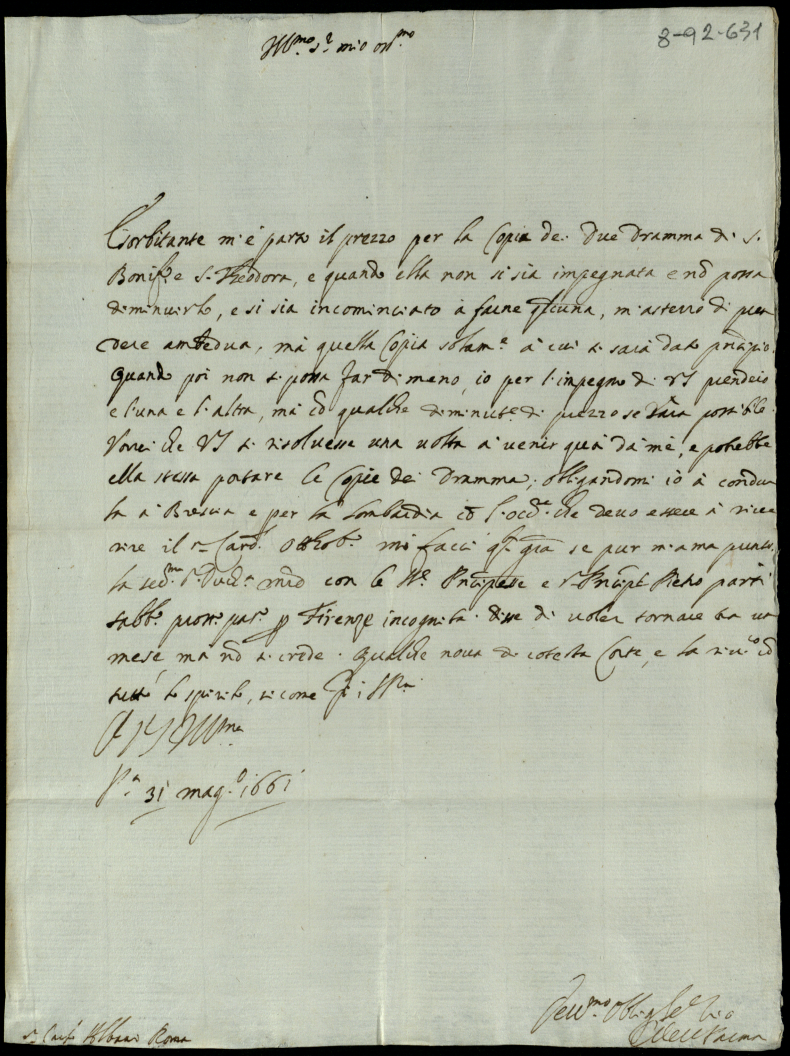 8-92-631
Ill.mo S.r mio oss.mo
Esorbitante m'è parso il prezzo per la Copia dei due Dramma di S.
Bonif.o e S. Theodora, e quando ella non si sia impegnata e nõ possa
diminuirlo, e si sia incominciato à farne alcuna, m'asterrò di pren
dere ambedua, mà quella Copia solam.e à cui si sarà dato principio.
Quando poi non si possa far di meno, io per l'impegno di VS prenderò
e l'una e l'altra, mà cõ qualche diminut.e di prezzo se sarà possibile.
Vorrei che VS si risolvesse una volta à venir quà dà me, e potrebbe
ella stessa portare le Copie dei Dramma, obligandomi io à condur
la à Brescia e per la Lombardia cõ l'occ.ne che devo essere à rice
vere il S.r Card. Otthob. mi facci q. gra se pur m'ama punto.
la Ser.ma S. Duch.a con le S.re Principesse e S. Princip. Pietro partì
sabb.o pross. pas.o p Firenze incognita. disse di voler tornare tra un
mese, ma nõ si crede. Qualche nova di cotesta Corte, e la riv.o cõ
tutto lo spirito, si come
Di VS Ill.ma
P.a 31 mag.o 1661
Dev.mo Oblig. Se.
S.r Albani Roma